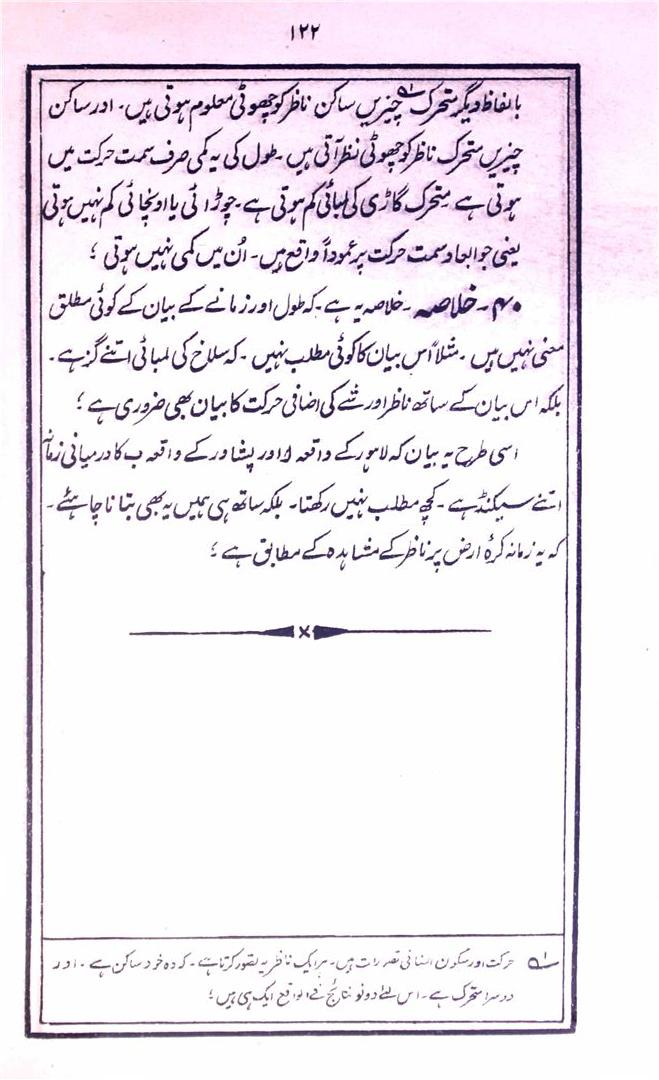 ۱۲۲
بالفاظ دیگر متحرک لہ چیزیں ساکن ناظر کو چھوٹی معلوم ہوتی ہیں۔ اور ساکن
چیزیں متحرک ناظر کو چھوٹی نظر آتی ہیں۔ طول کی یہ کمی صرف سمت حرکت میں
ہوتی ہے متحرک گاڑی کی لمبائی کم ہوتی ہے۔ چوڑائی یا اونچائی کم نہیں ہوتی
یعنی جو ابعاد سمت حرکت پر عموداً واقع ہیں۔ اُن میں کمی نہیں ہوتی ؛
۴۰۔ خلاصہ۔ خلاصہ یہ ہے۔ کہ طول اور زمانے کے بیان کے کوئی مطلق
معنی نہیں ہیں۔ مثلاً اس بیان کا کوئی مطلب نہیں۔ کہ سلاخ کی لمبائی اتنے گز ہے۔
بلکہ اس بیان کے ساتھ ناظر اور شے کی اضافی حرکت کا بیان بھی ضروری ہے ؛
اسی طرح یہ بیان کہ لاہور کے واقعہ ا اور پشاور کے واقعہ ب کا درمیانی زمانہ
اتنے سیکنڈ ہے۔ کچھ مطلب نہیں رکھتا۔ بلکہ ساتھ ہی ہمیں یہ بھی بتانا چاہئے۔
کہ یہ زمانہ کرۂ ارض پر ناظر کے مشاہدہ کے مطابق ہے ؛
لہ حرکت اور سکون اضافی تصورات ہیں۔ ہر ایک ناظر یہ تصور کرتا ہے۔ کہ وہ خود ساکن ہے۔ اور
دوسرا متحرک ہے۔ اس لئے دونو نتائج فی الواقع ایک ہی ہیں ؛